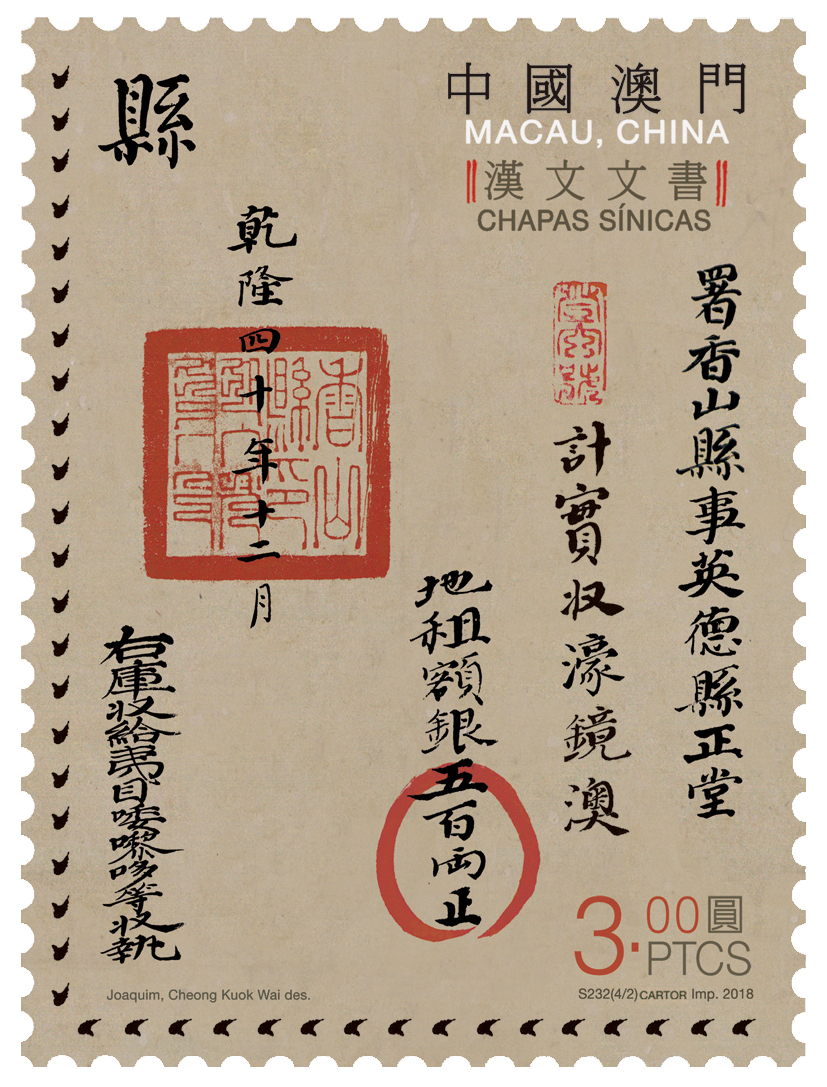 中國澳門
MACAU, CHINA
漢文文書
CHAPAS SÍNICAS
署香山縣事英德縣正堂
計實収濠鏡澳
地租額銀五百両正
乾隆四十年十二月
縣
右庫収給夷目唩嚟哆等収執
香山縣印
3.00圓
PTCS
Joaquim, Cheong Kuok Wai des.
S232(4/2) CARTOR Imp. 2018